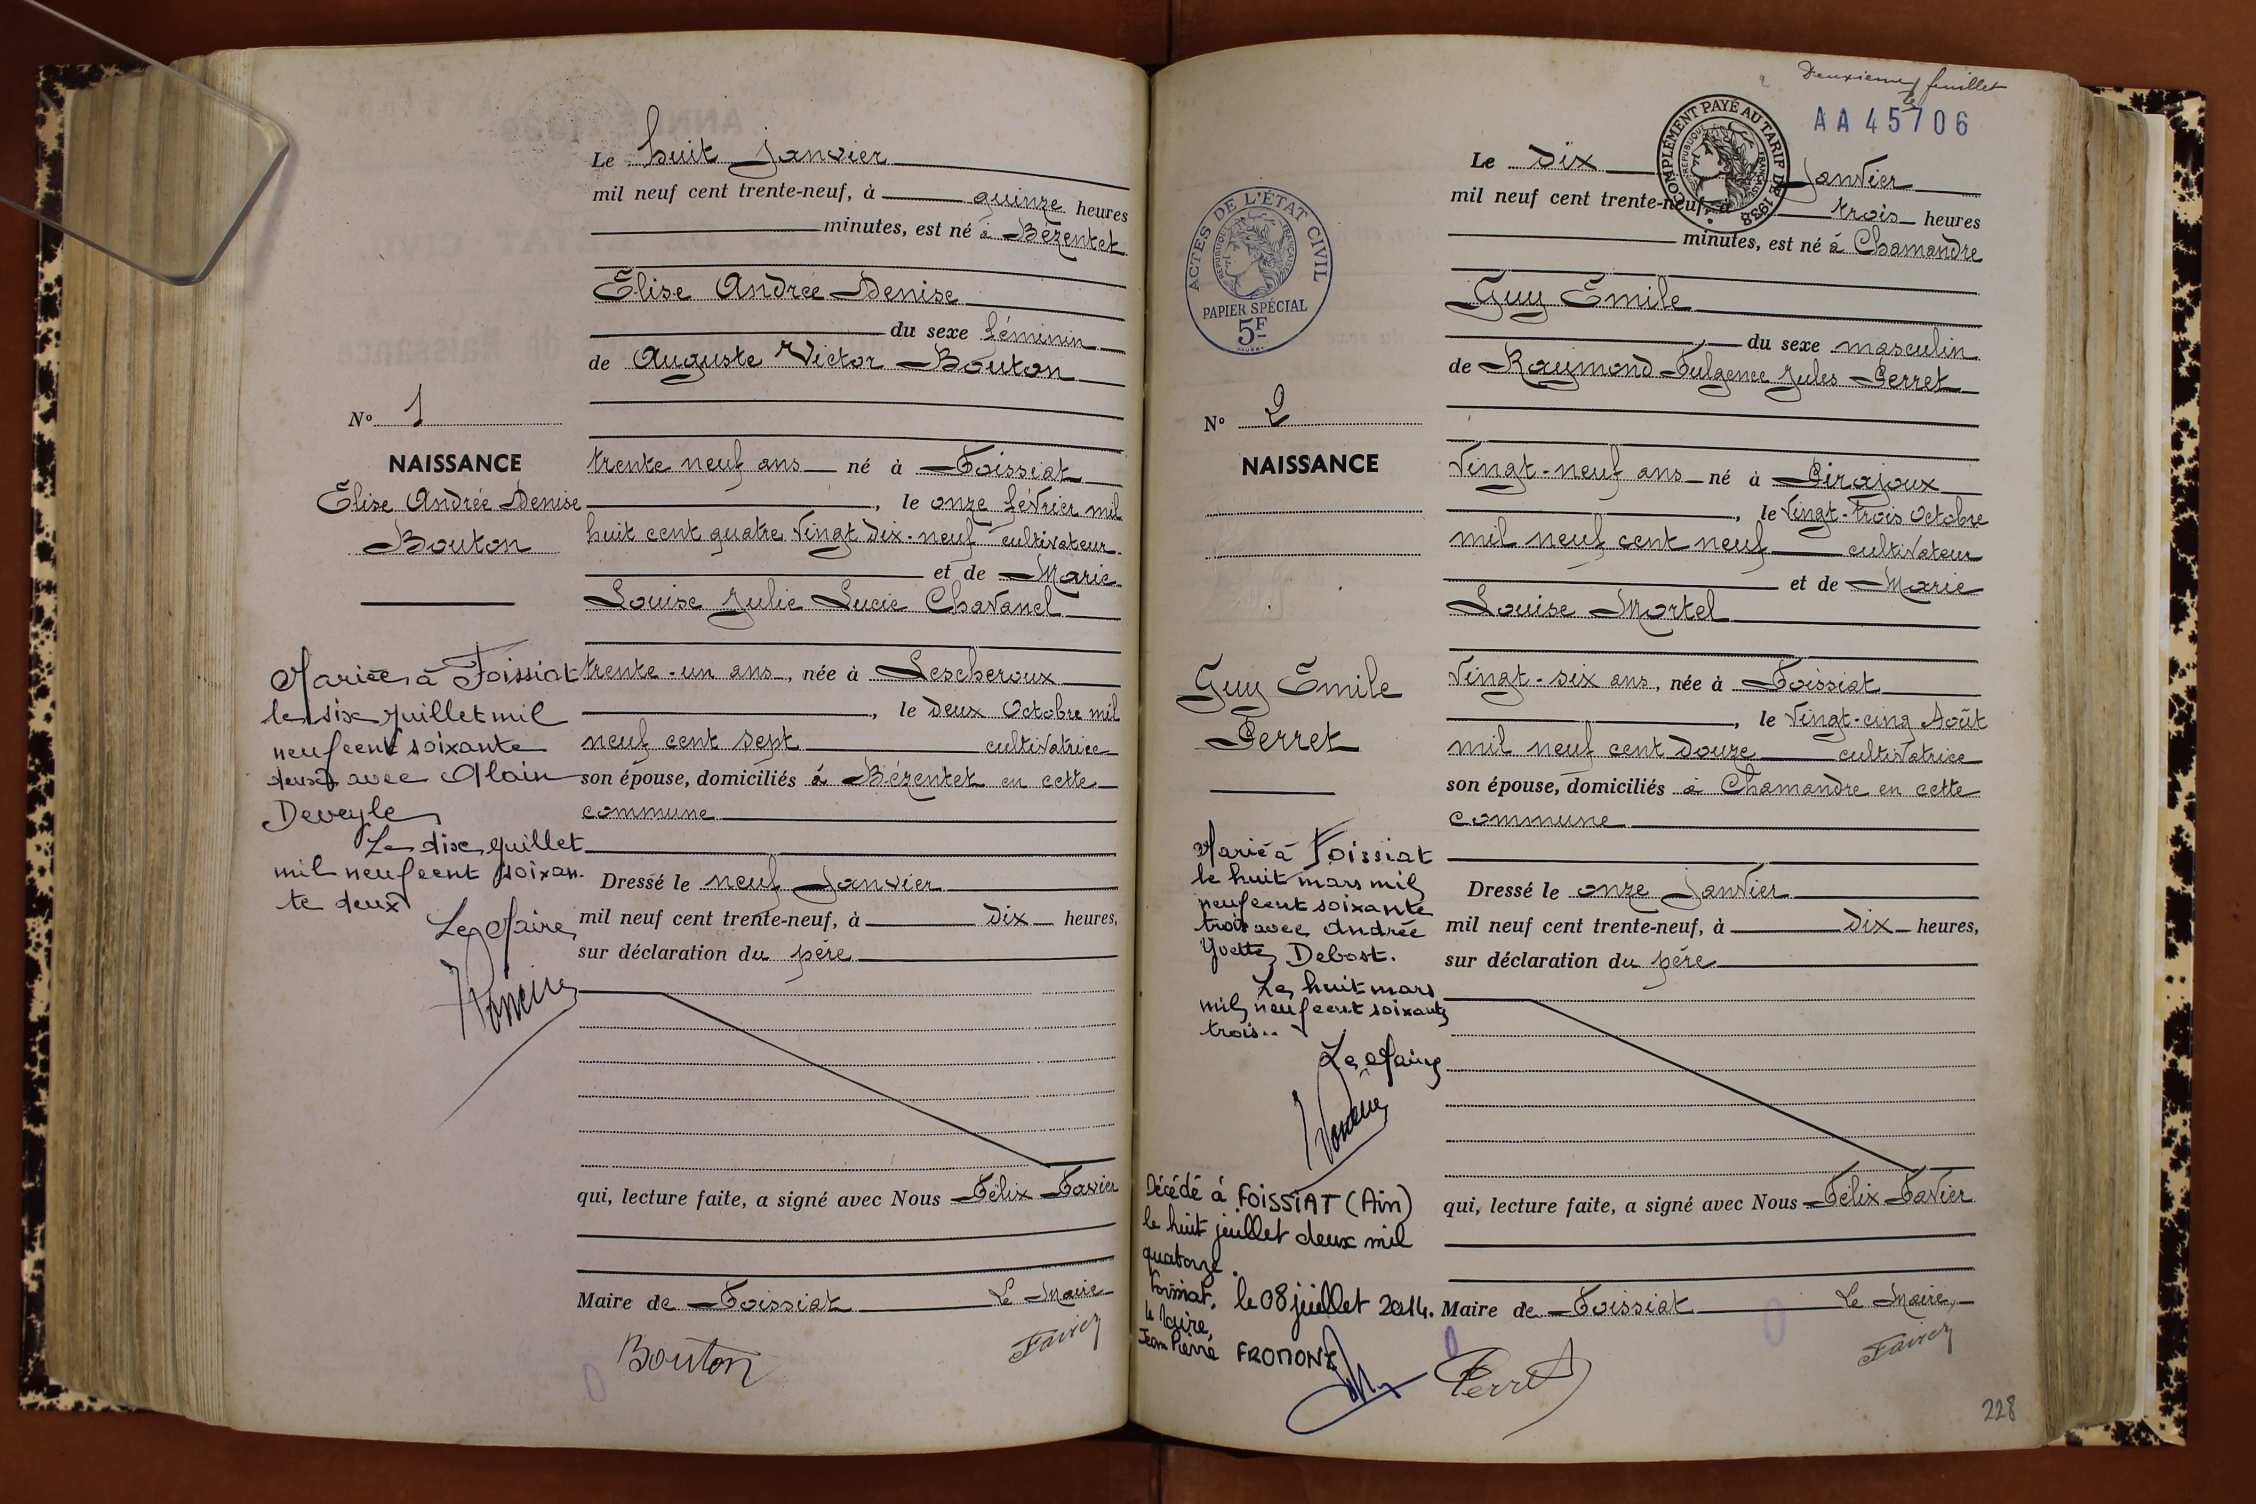 Le huit janvier
mil neuf cent trente-neuf, à quinze heures
minutes, est né à Bézentet
Elise Andrée Denise
du sexe féminin
de Auguste Victor Bouton
trente neuf ans né à Foissiat
, le onze février mil
huit cent quatre vingt dix-neuf cultivateur
et de Marie
Louise Julie Lucie Chavanel
trente-un ans, née à Lescheroux
, le deux Octobre mil
neuf cent sept cultivatrice
son épouse, domiciliés à Bézentet en cette
commune
Dressé le neuf Janvier
mil neuf cent trente-neuf, à dix heures,
sur déclaration du père
qui, lecture faite, a signé avec Nous Félix Favier
Maire de Foissiat Le Maire
Bouton
Favier
N° 1
NAISSANCE
Elise Andrée Denise
Bouton
Mariée à Foissiat
le six juillet mil
neuf cent soixante
deux avec Alain
Deveyle
Le dix juillet
mil neuf cent soixan-
te deux
Le Maire
Deuxième feuillet
AA 45706
COMPLÉMENT PAYÉ AU TARIF DE 1938
RÉPUBLIQUE FRANÇAISE
Le dix Janvier
mil neuf cent trente-neuf, à trois heures
minutes, est né à Chamandre
Guy Emile
du sexe masculin
de Raymond Fulgence Jules Perret
Vingt-neuf ans né à Pirajoux
, le Vingt-trois Octobre
mil neuf cent neuf cultivateur
et de Marie
Louise Mortel
Vingt-six ans, née à Foissiat
, le Vingt-cinq Août
mil neuf cent douze cultivatrice
son épouse, domiciliés à Chamandre en cette
commune
Dressé le onze janvier
mil neuf cent trente-neuf, à dix heures,
sur déclaration du père
qui, lecture faite, a signé avec Nous Félix Favier
Maire de Foissiat Le Maire,
Perret
Favier
ACTES DE L'ÉTAT CIVIL
RÉPUBLIQUE FRANÇAISE
PAPIER SPÉCIAL
5F
N° 2
NAISSANCE
Guy Emile
Perret
Marié à Foissiat
le huit mars mil
neuf cent soixante
trois avec Andrée
Yvette Debost.
Le huit mars
mil neuf cent soixante
trois..
Le Maire
Décédé à FOISSIAT (Ain)
le huit juillet deux mil
quatorze.
Foissiat, le 08 juillet 2014.
le Maire,
Jean Pierre FROMONT
228